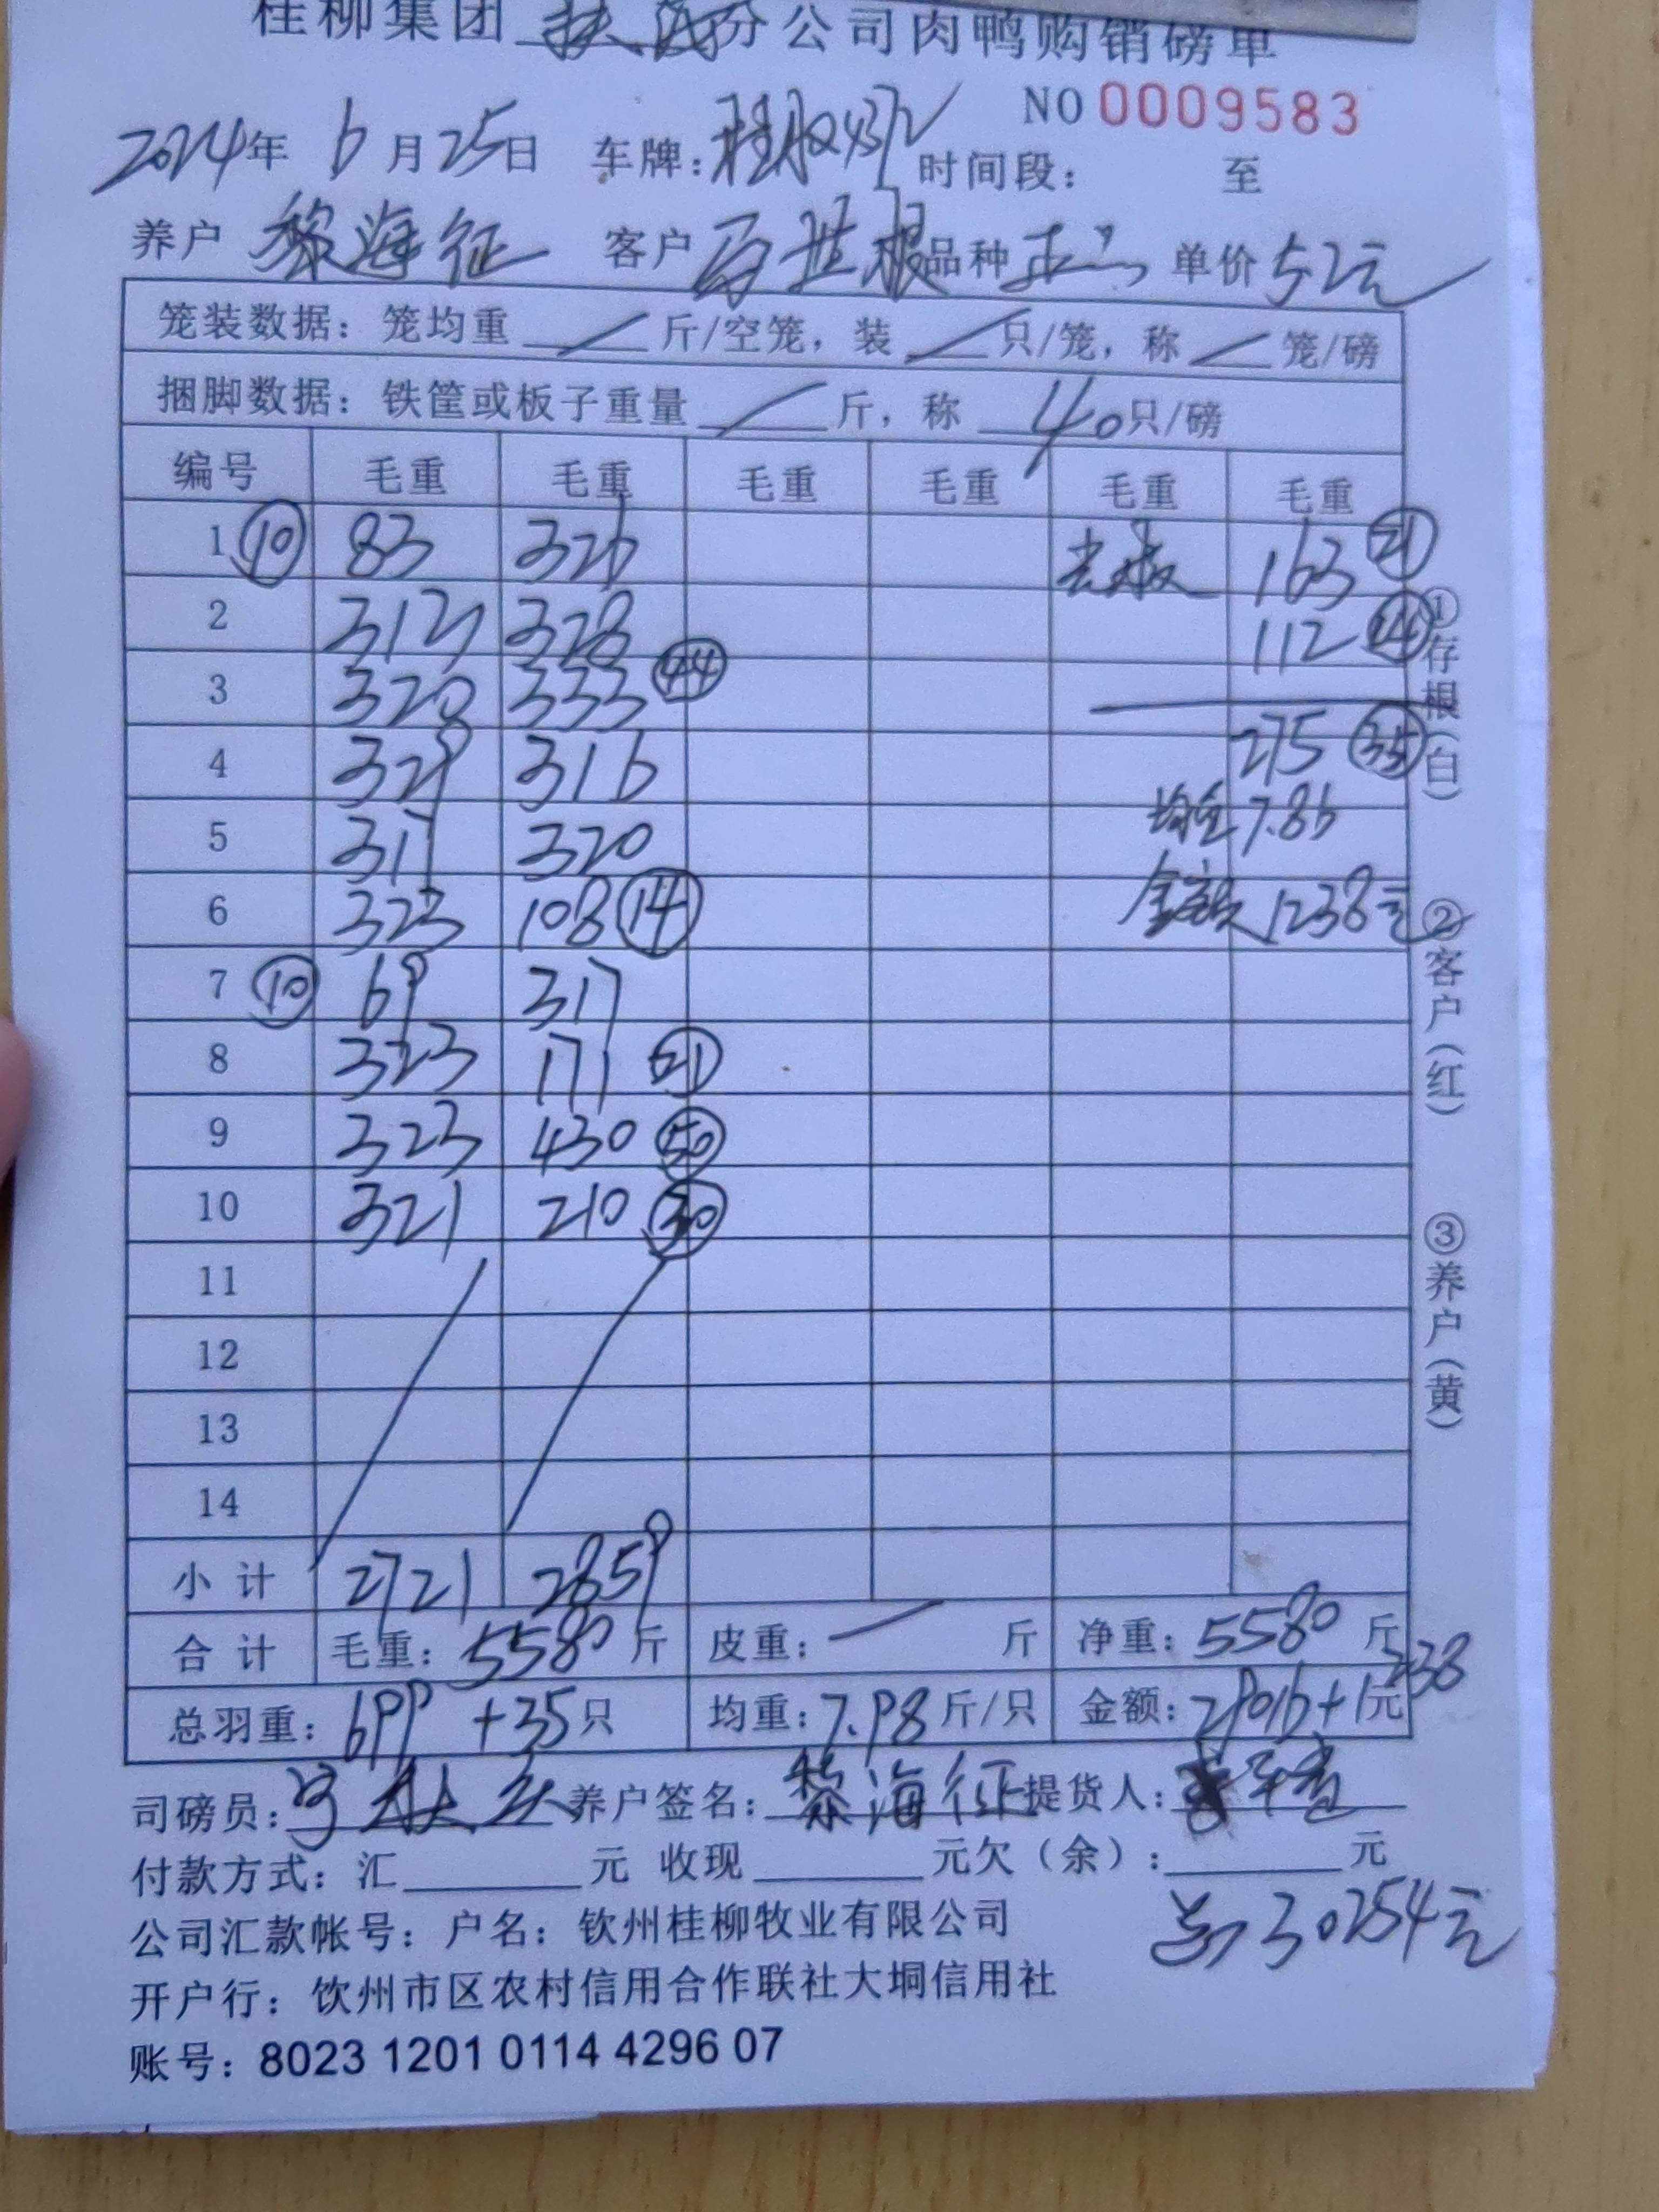 桂柳集团 分公司肉鸭购销磅单
NO 0009583
2024年 6月25日 车牌: 时间段: 至
养户 黎海征 客户 品种 单价 5.2元
笼装数据: 笼均重 / 斤/空笼, 装 / 只/笼, 称 / 笼/磅
捆脚数据: 铁筐或板子重量 / 斤, 称 40只/磅
编号 毛重 毛重 毛重 毛重 毛重 毛重
1 ⑩ 83 326 163 ㉑
2 313 328 112 ⑭
3 320 333 ㊹
4 329 316 275 ㉟
5 317 320 均重 7.86
6 323 108 ⑭ 金额 1238元
7 ⑩ 69 317
8 323 171 ㉑
9 323 430 ㊿
10 321 210 ㉚
11
12
13
14
小计 2721 2859
合计 毛重: 5580 斤 皮重: 一 斤 净重: 5580 斤
总羽重: 699 +35只 均重: 7.98斤/只 金额: 29016+1238元
司磅员: 养户签名: 黎海征 提货人:
付款方式: 汇 元 收现 元欠(余): 元
总 30254元
公司汇款帐号: 户名: 钦州桂柳牧业有限公司
开户行: 饮州市区农村信用合作联社大垌信用社
账号: 8023 1201 0114 4296 07
①存根(白) ②客户(红) ③养户(黄)